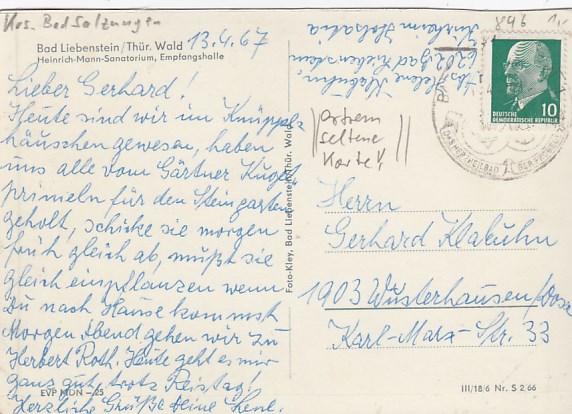 Krs. Bad Salzungen
Bad Liebenstein/Thür. Wald
Heinrich-Mann-Sanatorium, Empfangshalle
13.4.67
Lieber Gerhard!
Heute sind wir im Knüppels
häuschen gewesen, haben
uns alle vom Gärtner Kugel
primeln für den Steingarten
geholt, schicke sie morgen
früh gleich ab, mußt sie
gleich einpflanzen wenn
Du nach Hause kommst
Morgen Abend gehen wir zu
Herbert Roth. Heute geht es mir
ganz gut, trotz Reistag!
Herzliche Grüße Deine Lene.
EVP MDN –25
Foto-Kley, Bad Liebenstein/Thür. Wald
Abs. Helene Klabuhn,
6202 Bad Liebenstein
846
DEUTSCHE
DEMOKRATISCHE REPUBLIK
10
extrem
seltene
Karte!
Herrn
Gerhard Klabuhn
1903 Wusterhausen/Dosse
Karl-Marx-Str. 33
III/18/6 Nr. S 2/66